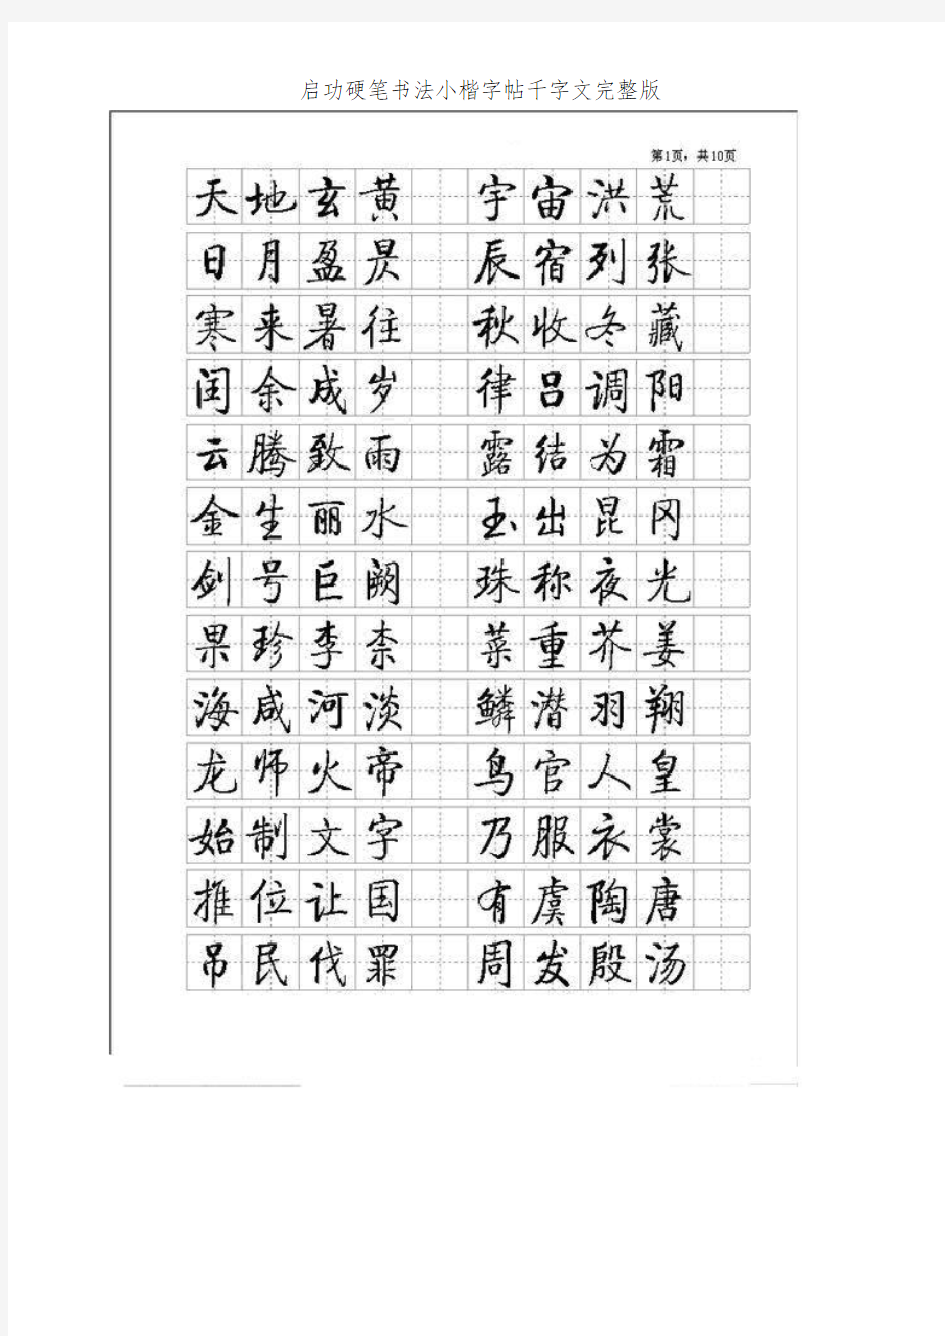 启功硬笔书法小楷字帖千字文完整版
第1页，共10页
天地玄黄 宇宙洪荒
日月盈昃 辰宿列张
寒来暑往 秋收冬藏
闰余成岁 律吕调阳
云腾致雨 露结为霜
金生丽水 玉出昆冈
剑号巨阙 珠称夜光
果珍李柰 菜重芥姜
海咸河淡 鳞潜羽翔
龙师火帝 鸟官人皇
始制文字 乃服衣裳
推位让国 有虞陶唐
吊民伐罪 周发殷汤